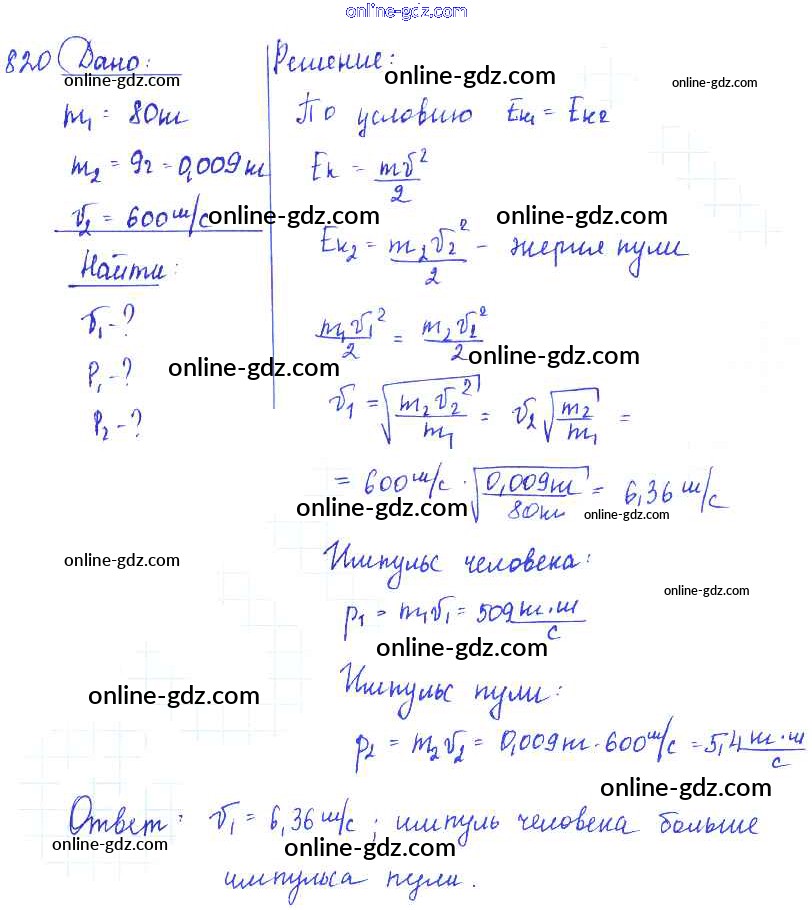 online-gdz.com
820 Дано:
online-gdz.com
m₁ = 80кг
m₂ = 9г = 0,009кг
v₂ = 600 м/с
Найти:
v₁ - ?
p₁ - ?
p₂ - ?
Решение:
online-gdz.com
online-gdz.com
По условию Eк₁ = Eк₂
Eк = mv²/2
online-gdz.com
online-gdz.com
Eк₂ = m₂v₂²/2 - энергия пули
m₁v₁²/2 = m₂v₂²/2
online-gdz.com
online-gdz.com
v₁ = √(m₂v₂²/m₁) = v₂ √(m₂/m₁) =
= 600 м/с · √(0,009кг/80кг) = 6,36 м/с
online-gdz.com
online-gdz.com
Импульс человека:
online-gdz.com
online-gdz.com
p₁ = m₁v₁ = 509 кг·м/с
online-gdz.com
Импульс пули:
online-gdz.com
p₂ = m₂v₂ = 0,009кг · 600 м/с = 5,4 кг·м/с
online-gdz.com
Ответ: v₁ = 6,36 м/с; импуль человека больше
online-gdz.com
online-gdz.com
импульса пули.